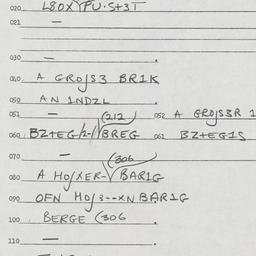 020. L80XYFU·S+3T
021 —
030. —
040. A GROJS3 BR1K
050 AN 1NDZL
051 — (212 052 A GROJS3R 1
060. BZ+EG/2-1/BREG 061 BZ+EG1S
070 — (306
080 A HO/XER-√BAR1G
090 OFN HOJ3--XN BAR1G
100. BERGE (306
110 —